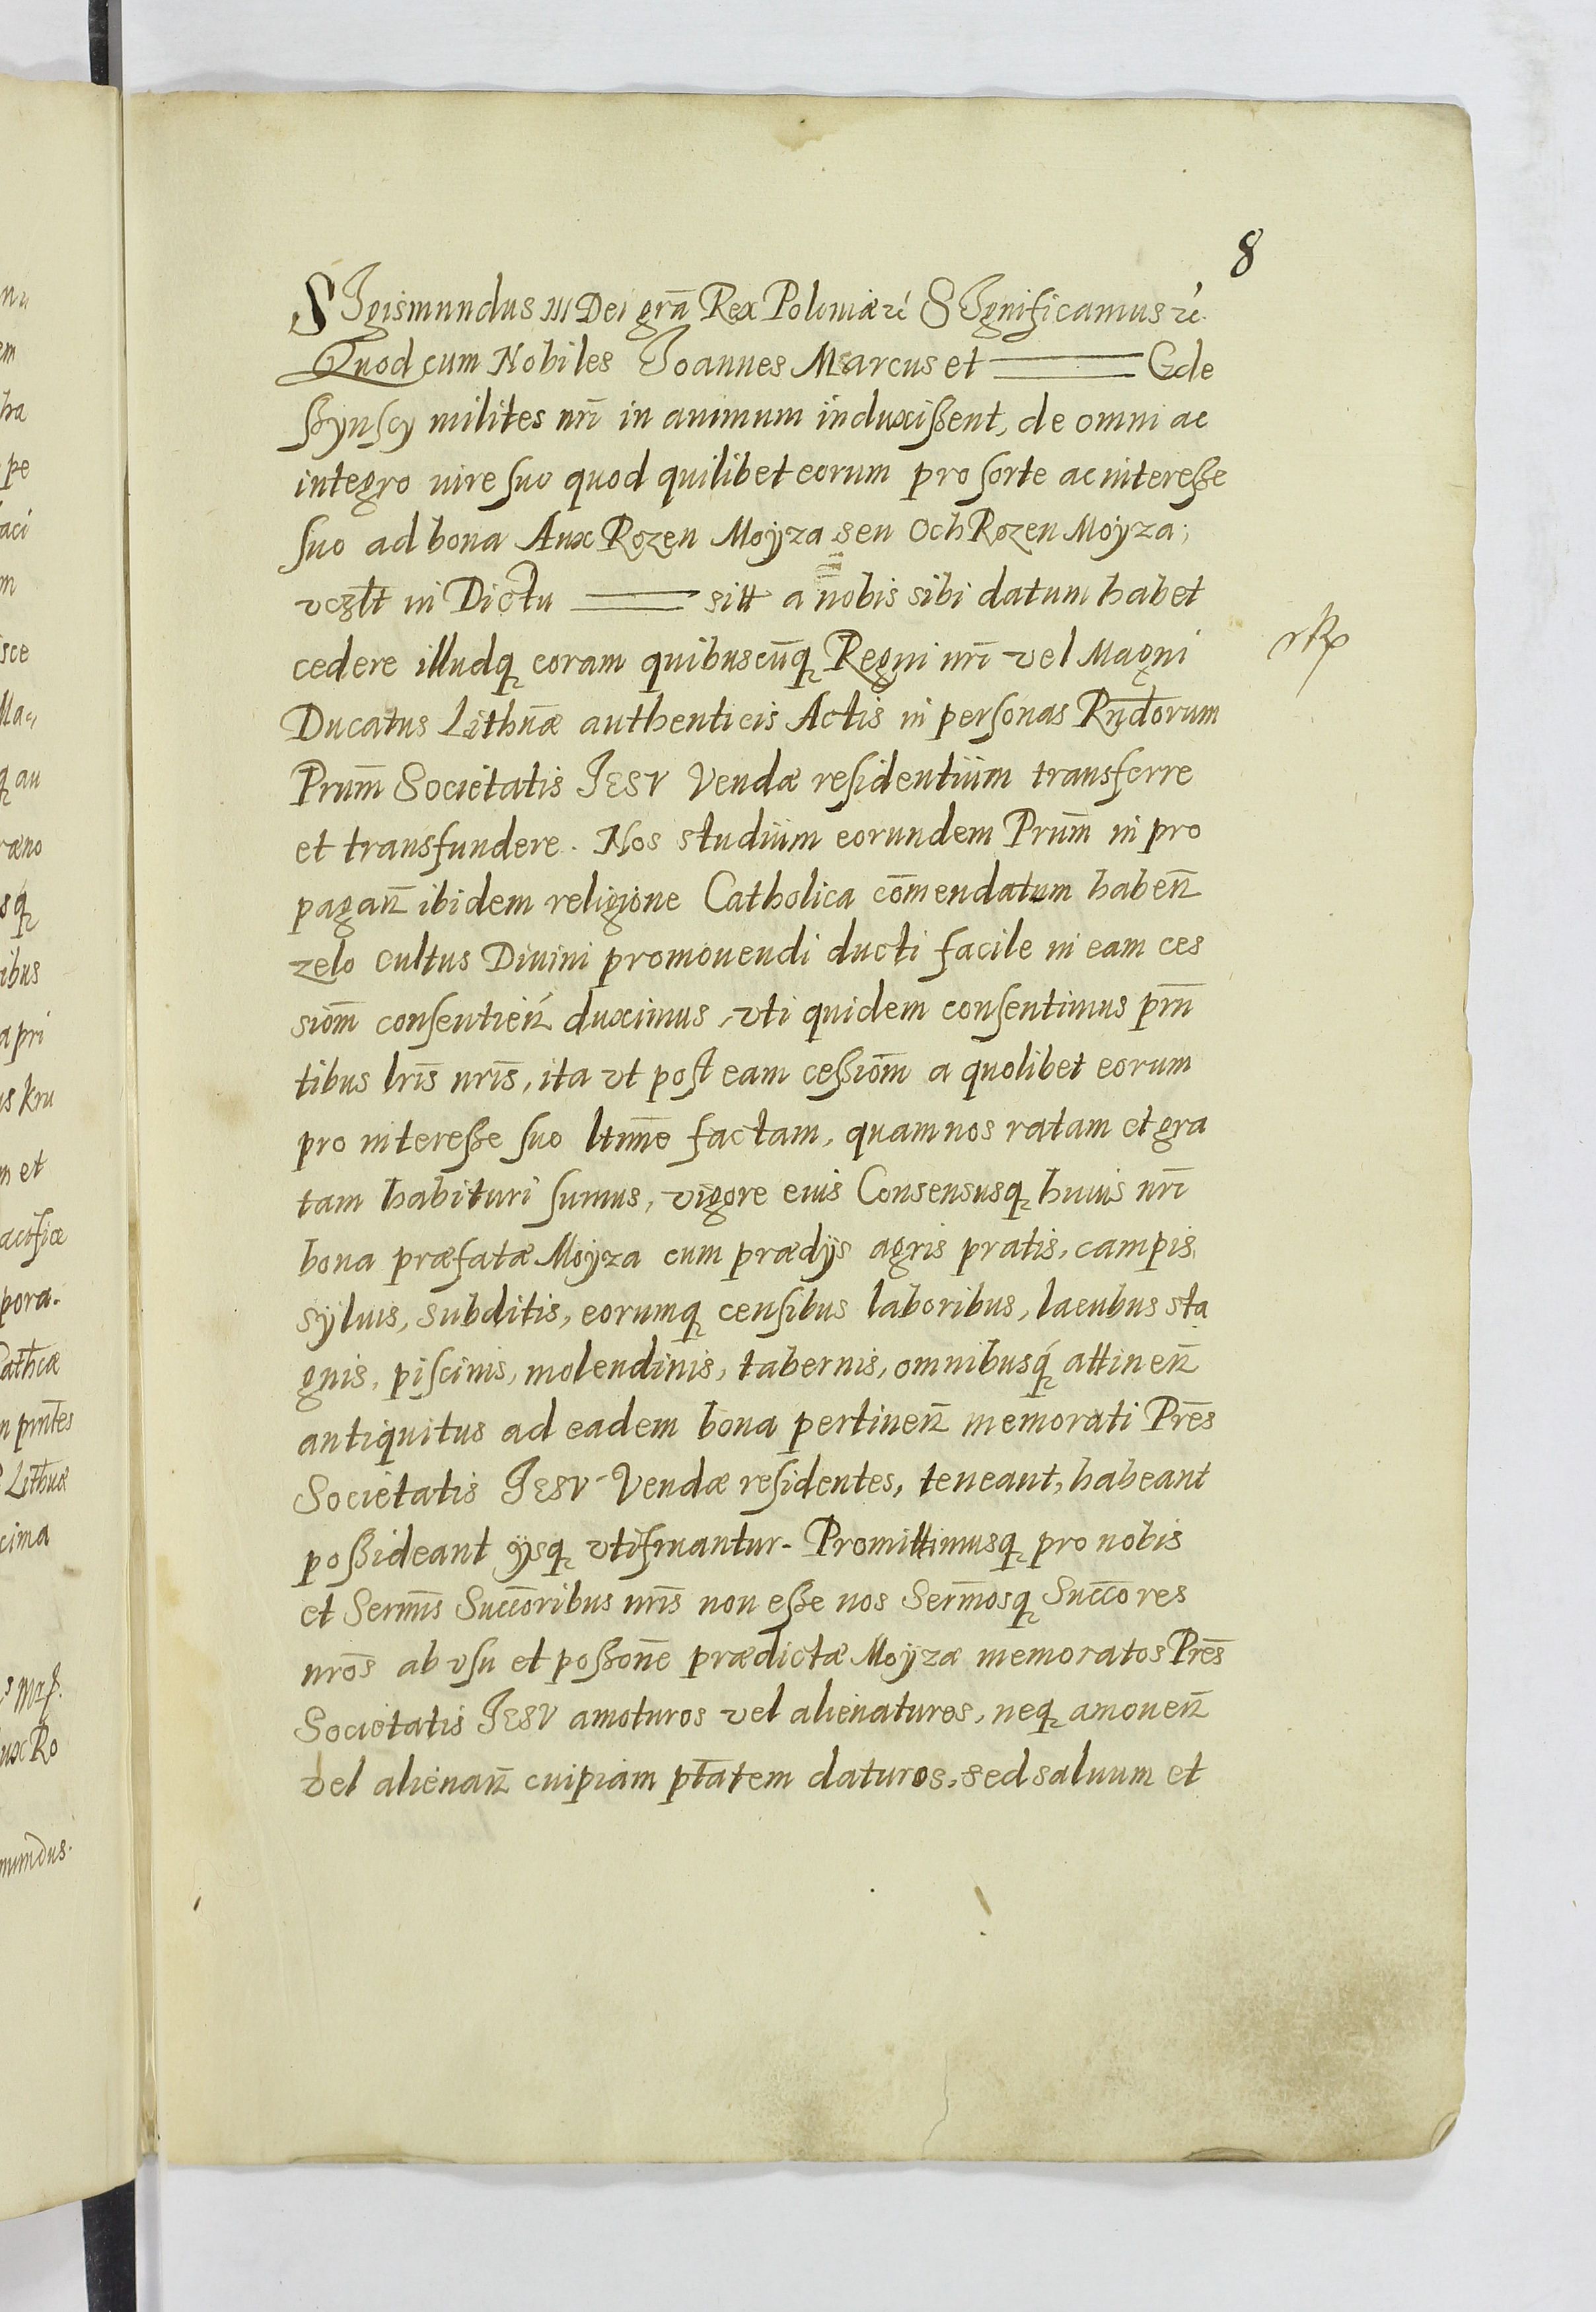 8
SIgismundus III Dei grã Rex Poloniæ ꝛc̃ SIgnificamus ꝛc̃.
Quod cum Nobiles Joannes Marcus et ——— Gde
ßÿnscÿ milites nr̃i in animum induxißent, de omni ac
integro iure suo quod quilibet eorum pro sorte ac intereße
suo ad bona Aux Rozen Moÿza seu Och Rozen Moÿza;
vczlt in Dictu ——— sitt a nobis sibi datum habet
cedere illudq̨ coram quibuscũq̨ Regni nr̃i vel Magni
Ducatus Lithũæ authenticis Actis in personas Rñdorum
Prum̃ Societatis Jesv Vendæ residentium transferre
et transfundere. Nos studium eorundem Prum̃ in pro
pagañ ibidem religione Catholica com̃endatum habeñ
zelo cultus Diuini promouendi ducti facile in eam ces
siom̃ consentień duximus, vti quidem consentimus prñ
tibus lr̃is nr̃is, ita vt post eam ceßiom̃ a quolibet eorum
pro intereße suo ltim̃e factam, quam nos ratam et gra
tam habituri sumus, vigore eius Consensusq̨ huius nr̃i
bona præfatæ Moÿza cum prædÿs agris pratis, campis
sÿluis, subditis, eorumq̨ censibus laboribus, lacubus sta
gnis, piscinis, molendinis, tabernis, omnibusq̨́ attineñ
antiquitus ad eadem bona pertineñ memorati Pr̃es
Societatis Jesv Vendæ residentes, teneant, habeant
poßideant ÿsq̨ vtifruantur. Promittimusq̨ pro nobis
et Serm̃is Succ̃oribus nr̃is non eße nos Serm̃osq̨ Succ̃ores
nr̃os ab vsu et poßoñe prædictæ Moÿzæ memoratos Pr̃es
Societatis Jesv amoturos vel alienaturos, neq̨ amoueñ
vel alienañ cuipiam pt̃atem daturos, sed saluum et